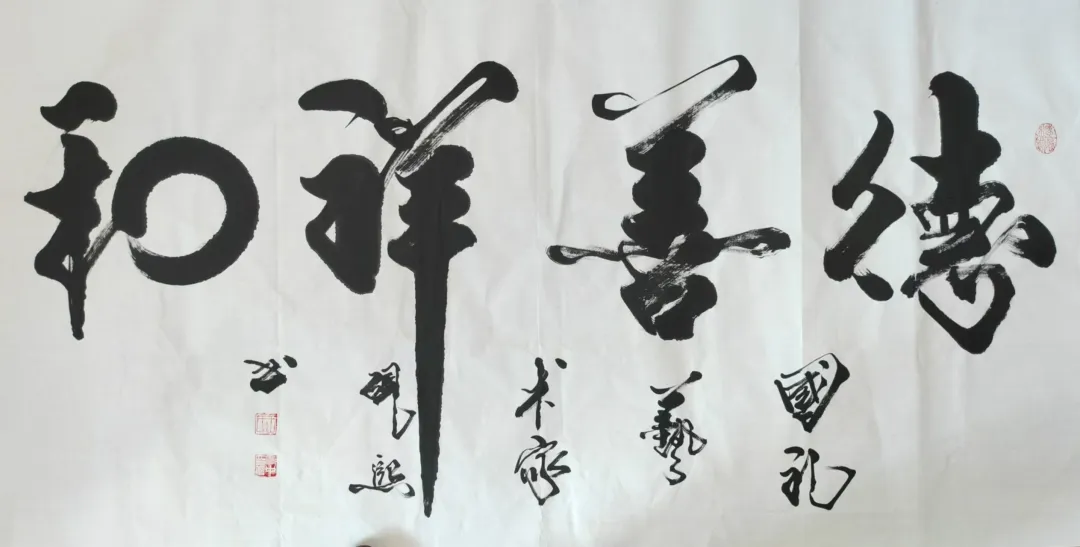 德善祥和
國礼
藝
术家
砚熙
书